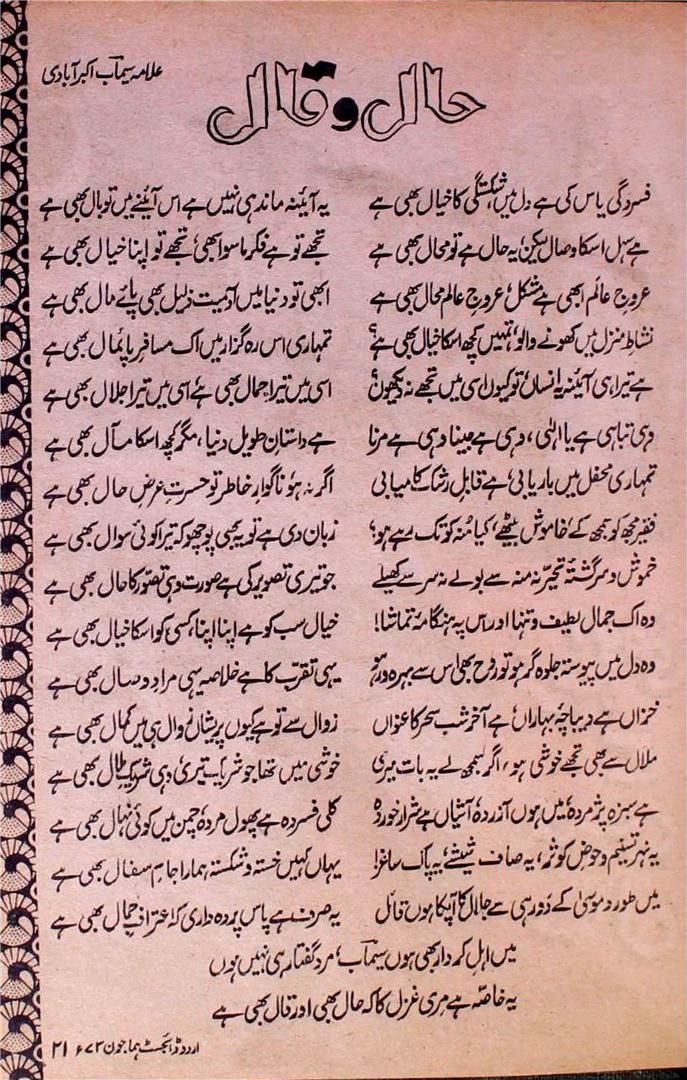 علامہ سیماب اکبر آبادی
حال و قال
فسردگی یاس کی ہے دل میں شکستگی کا خیال بھی ہے یہ آئینہ ماند ہی نہیں ہے اس آئینے میں تو بال بھی ہے
ہے سہل اسکا وصال لیکن یہ حال ہے تو محال بھی ہے تجھے تو ہے فکر ماسوا بھی، تجھے تو اپنا خیال بھی ہے
عروجِ عالم ابھی ہے مشکل، عروجِ عالم محال بھی ہے ابھی تو دنیا میں آدمیت ذلیل بھی پائے مال بھی ہے
نشاطِ منزل میں کھونے والو، تمہیں کچھ اسکا خیال بھی ہے؟ تمہاری اس رہ گزار میں اک مسافرِ پائمال بھی ہے
ہے تیرا ہی آئینہ یہ انساں، تو کیوں اسی میں تجھے نہ دیکھوں؟ اسی میں تیرا جمال بھی ہے اسی میں تیرا جلال بھی ہے
وہی تباہی ہے یا الٰہی، وہی ہے مینا وہی ہے مرنا ہے داستانِ طویل دنیا، مگر کچھ اسکا مآل بھی ہے
تمہاری محفل میں باریابی، ہے قابلِ رشک کامیابی اگر نہ ہو ناگوارِ خاطر تو حسرتِ عرضِ حال بھی ہے
فقیر مجھ کو سمجھ کے، خاموش بیٹھے، کیا منہ کو تک رہے ہو؟ زبان دی ہے تو یہ بھی پوچھو کہ تیرا کوئی سوال بھی ہے
خموش و سرگشتۂ تحیّر نہ منہ سے بولے نہ سر سے کھیلے جو تیری تصویر کی ہے صورت وہی تصوّر کا حال بھی ہے
وہ اک جمالِ لطیف و تنہا اور اس پہ ہنگامۂ تماشا! خیال سب کو ہے اپنا اپنا، کسی کو اسکا خیال بھی ہے
وہ دل میں پیوستہ جلوہ گر ہو تو روح بھی اس سے بہرہ ور ہو یہی تقرّب کا ہے خلاصہ یہی مرادِ وصال بھی ہے
خزاں ہے دیباچۂ بہاراں ہے آخرِ شب سحر کا عنواں زوال سے تو ہے کیوں پریشاں زوال ہی میں کمال بھی ہے
ملال سے بھی تجھے خوشی ہو، اگر سمجھ لے یہ بات میری خوشی میں تھا جو شریک تیری وہی شریکِ ملال بھی ہے
ہے سبزہ پژمردہ، میں ہوں آزردہ آشیاں ہے شرار خوردہ کلی فسردہ ہے پھول مردہ چمن میں کوئی نہال بھی ہے
یہ نہرِ تسنیم و حوضِ کوثر، یہ صاف شیشے، یہ پاک ساغر! یہاں کہیں خستہ و شکستہ ہمارا جامِ سفال بھی ہے
میں طور و موسیٰ کے دور ہی سے جلال کا آپکا ہوں قائل یہ صرف ہے پاسِ پردہ داری کہ اعترافِ جمال بھی ہے
میں اہلِ کردار بھی ہوں سیمابؔ، مردِ گفتار ہی نہیں ہوں
یہ خاصّہ ہے مری غزل کا کہ حال بھی اور قال بھی ہے
اردو ڈائجسٹ ہما جون ۷۳ء ۲۱